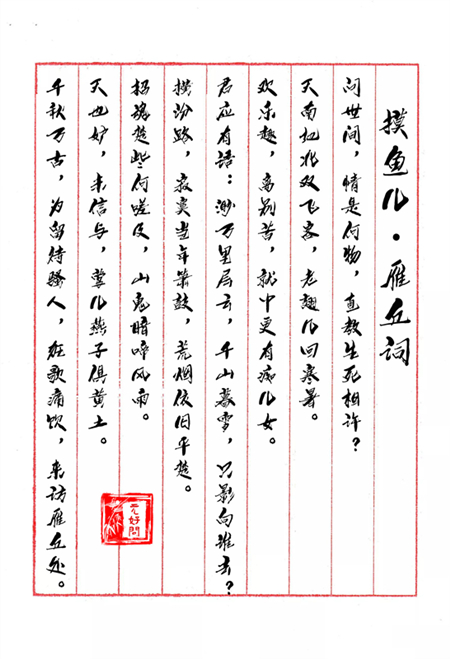 摸鱼儿·雁丘词
问世间，情是何物，直教生死相许？
天南地北双飞客，老翅几回寒暑。
欢乐趣，离别苦，就中更有痴儿女。
君应有语：渺万里层云，千山暮雪，只影向谁去？
横汾路，寂寞当年箫鼓，荒烟依旧平楚。
招魂楚些何嗟及，山鬼暗啼风雨。
天也妒，未信与，莺儿燕子俱黄土。
千秋万古，为留待骚人，狂歌痛饮，来访雁丘处。
元好问